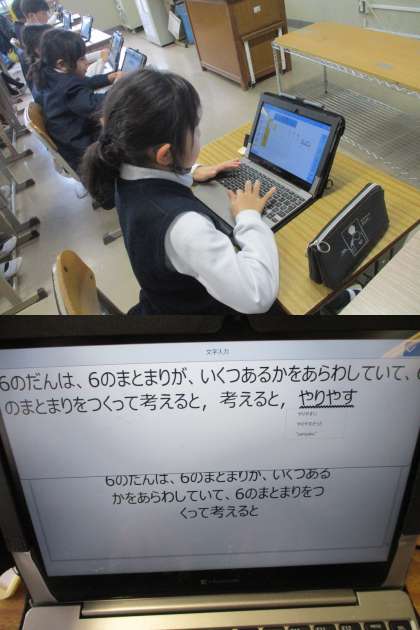 文字入力
6のだんは、6のまとまりが、いくつあるかをあらわしていて、6
のまとまりをつくって考えると，考えると，やりやす
やりやすい
6のだんは、6のまとまりが、いくつある
かをあらわしていて、6のまとまりをつ
くって考えると